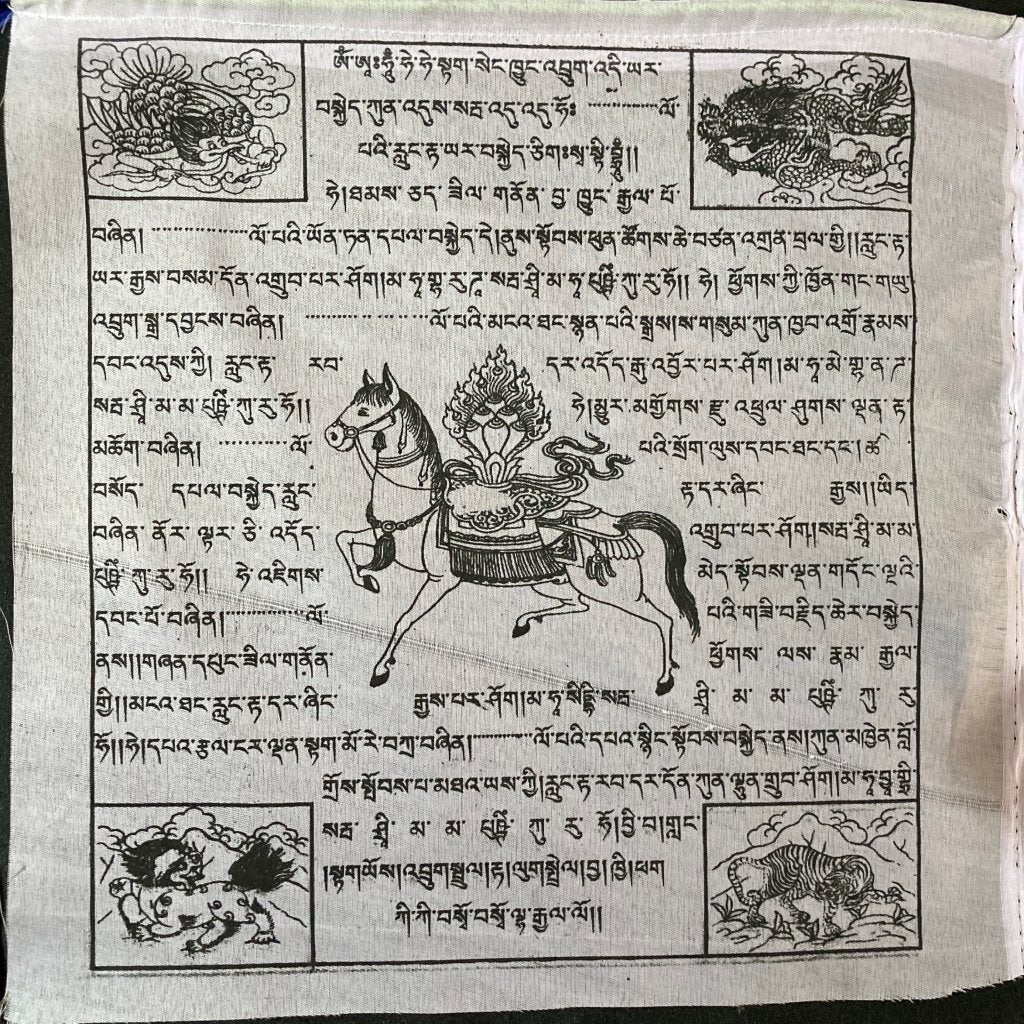 ༀ་ཨཱཿཧཱུྃ་ཧེ་ཧེ་སྟག་སེང་ཁྱུང་འབྲུག་འདི་ཡར་
བསྐྱེད་ཀུན་འདུས་སརྦ་འདུ་འདུ་ཧོཿ ་་་་་་་་་་་་ལོ་
པའི་རླུང་རྟ་ཡར་བསྐྱེད་ཅིག
ཧེ།ཐམས་ཅད་ཟིལ་གནོན་བྱ་ཁྱུང་རྒྱལ་པོ་
བཞིན། ་་་་་་་་་་་་་་་ལོ་པའི་ཡོན་ཏན་དཔལ་བསྐྱེད་དེ།ནུས་སྟོབས་ཕུན་ཚོགས་ཆེ་བཙན་འགྲན་བྲལ་གྱི།།རླུང་རྟ་
ཡར་རྒྱས་བསམ་དོན་འགྲུབ་པར་ཤོག།མ་ཧཱ་ ཀུ་རུ་ཧོ།། ཧེ། ཕྱོགས་ཀྱི་ཁྱོན་གང་གཡུ་
འབྲུག་སྒྲ་དབྱངས་བཞིན། ་་་་་་་་་་་་་་་་་་་ལོ་པའི་མངའ་ཐང་སྙན་པའི་སྒྲས།ས་གསུམ་ཀུན་ཁྱབ་འགྲོ་རྣམས་
དབང་འདུས་ཀྱི། རླུང་རྟ་ རབ་ དར་འདོད་རྒུ་འབྱོར་པར་ཤོག།མ་ཧཱ་མེ་
སརྦ་ཤྲཱི་མ་མ་ ཀུ་རུ་ཧོ།། ཧེ།མྱུར་མགྱོགས་རྫུ་འཕྲུལ་ཤུགས་ལྡན་རྟ་
མཆོག་བཞིན། ་་་་་་་་་་་ལོ་ པའི་སྲོག་ལུས་དབང་ཐང་དང་།ཚེ་
བསོད་ དཔལ་བསྐྱེད་རླུང་ རྟ་དར་ཞིང་ རྒྱས།།ཡིད་
བཞིན་ནོར་ལྟར་ཅི་འདོད་ འགྲུབ་པར་ཤོག།སརྦ་ཤྲཱི་མ་མ་
ཀུ་རུ་ཧོ།། ཧེ་འཇིགས་ མེད་སྟོབས་ལྡན་གདོང་ལྔའི་
དབང་པོ་བཞིན།་་་་་་་་་་་་་ལོ་ པའི་གཟི་བརྗིད་ཆེར་བསྐྱེད་
ནས།།གཞན་དཔུང་ཟིལ་གནོན་ ཕྱོགས་ ལས་ རྣམ་ རྒྱལ་
གྱི།།མངའ་ཐང་རླུང་རྟ་དར་ཞིང་ རྒྱས་པར་ཤོག།མ་ཧཱ་སིདྡྷི་སརྦ་ ཤྲཱི་ མ་ མ་ ཀུ་ རུ་
ཧོ།།ཧེ།དཔའ་རྩལ་ངར་ལྡན་སྟག་མོ་རེ་བཀྲ་བཞིན།་་་་་་་་་་་ལོ་པའི་དཔའ་སྙིང་སྟོབས་བསྐྱེད་ནས།ཀུན་མཁྱེན་བློ་
གྲོས་སྤོབས་པ་མཐའ་ཡས་ཀྱི།རླུང་རྟ་རབ་དར་དོན་ཀུན་ལྷུན་གྲུབ་ཤོག།མ་ཧཱ་
སརྦ་ ཤྲཱི་ མ་ མ་ ཀུ་ རུ་ ཧོ།བྱི་བ།གླང་
།སྟག་ཡོས།འབྲུག་སྦྲུལ།རྟ།ལུག་སྤྲེལ།བྱ།ཁྱི།ཕག
ཀི་ཀི་བསྭོ་བསྭོ་ལྷ་རྒྱལ་ལོ།།